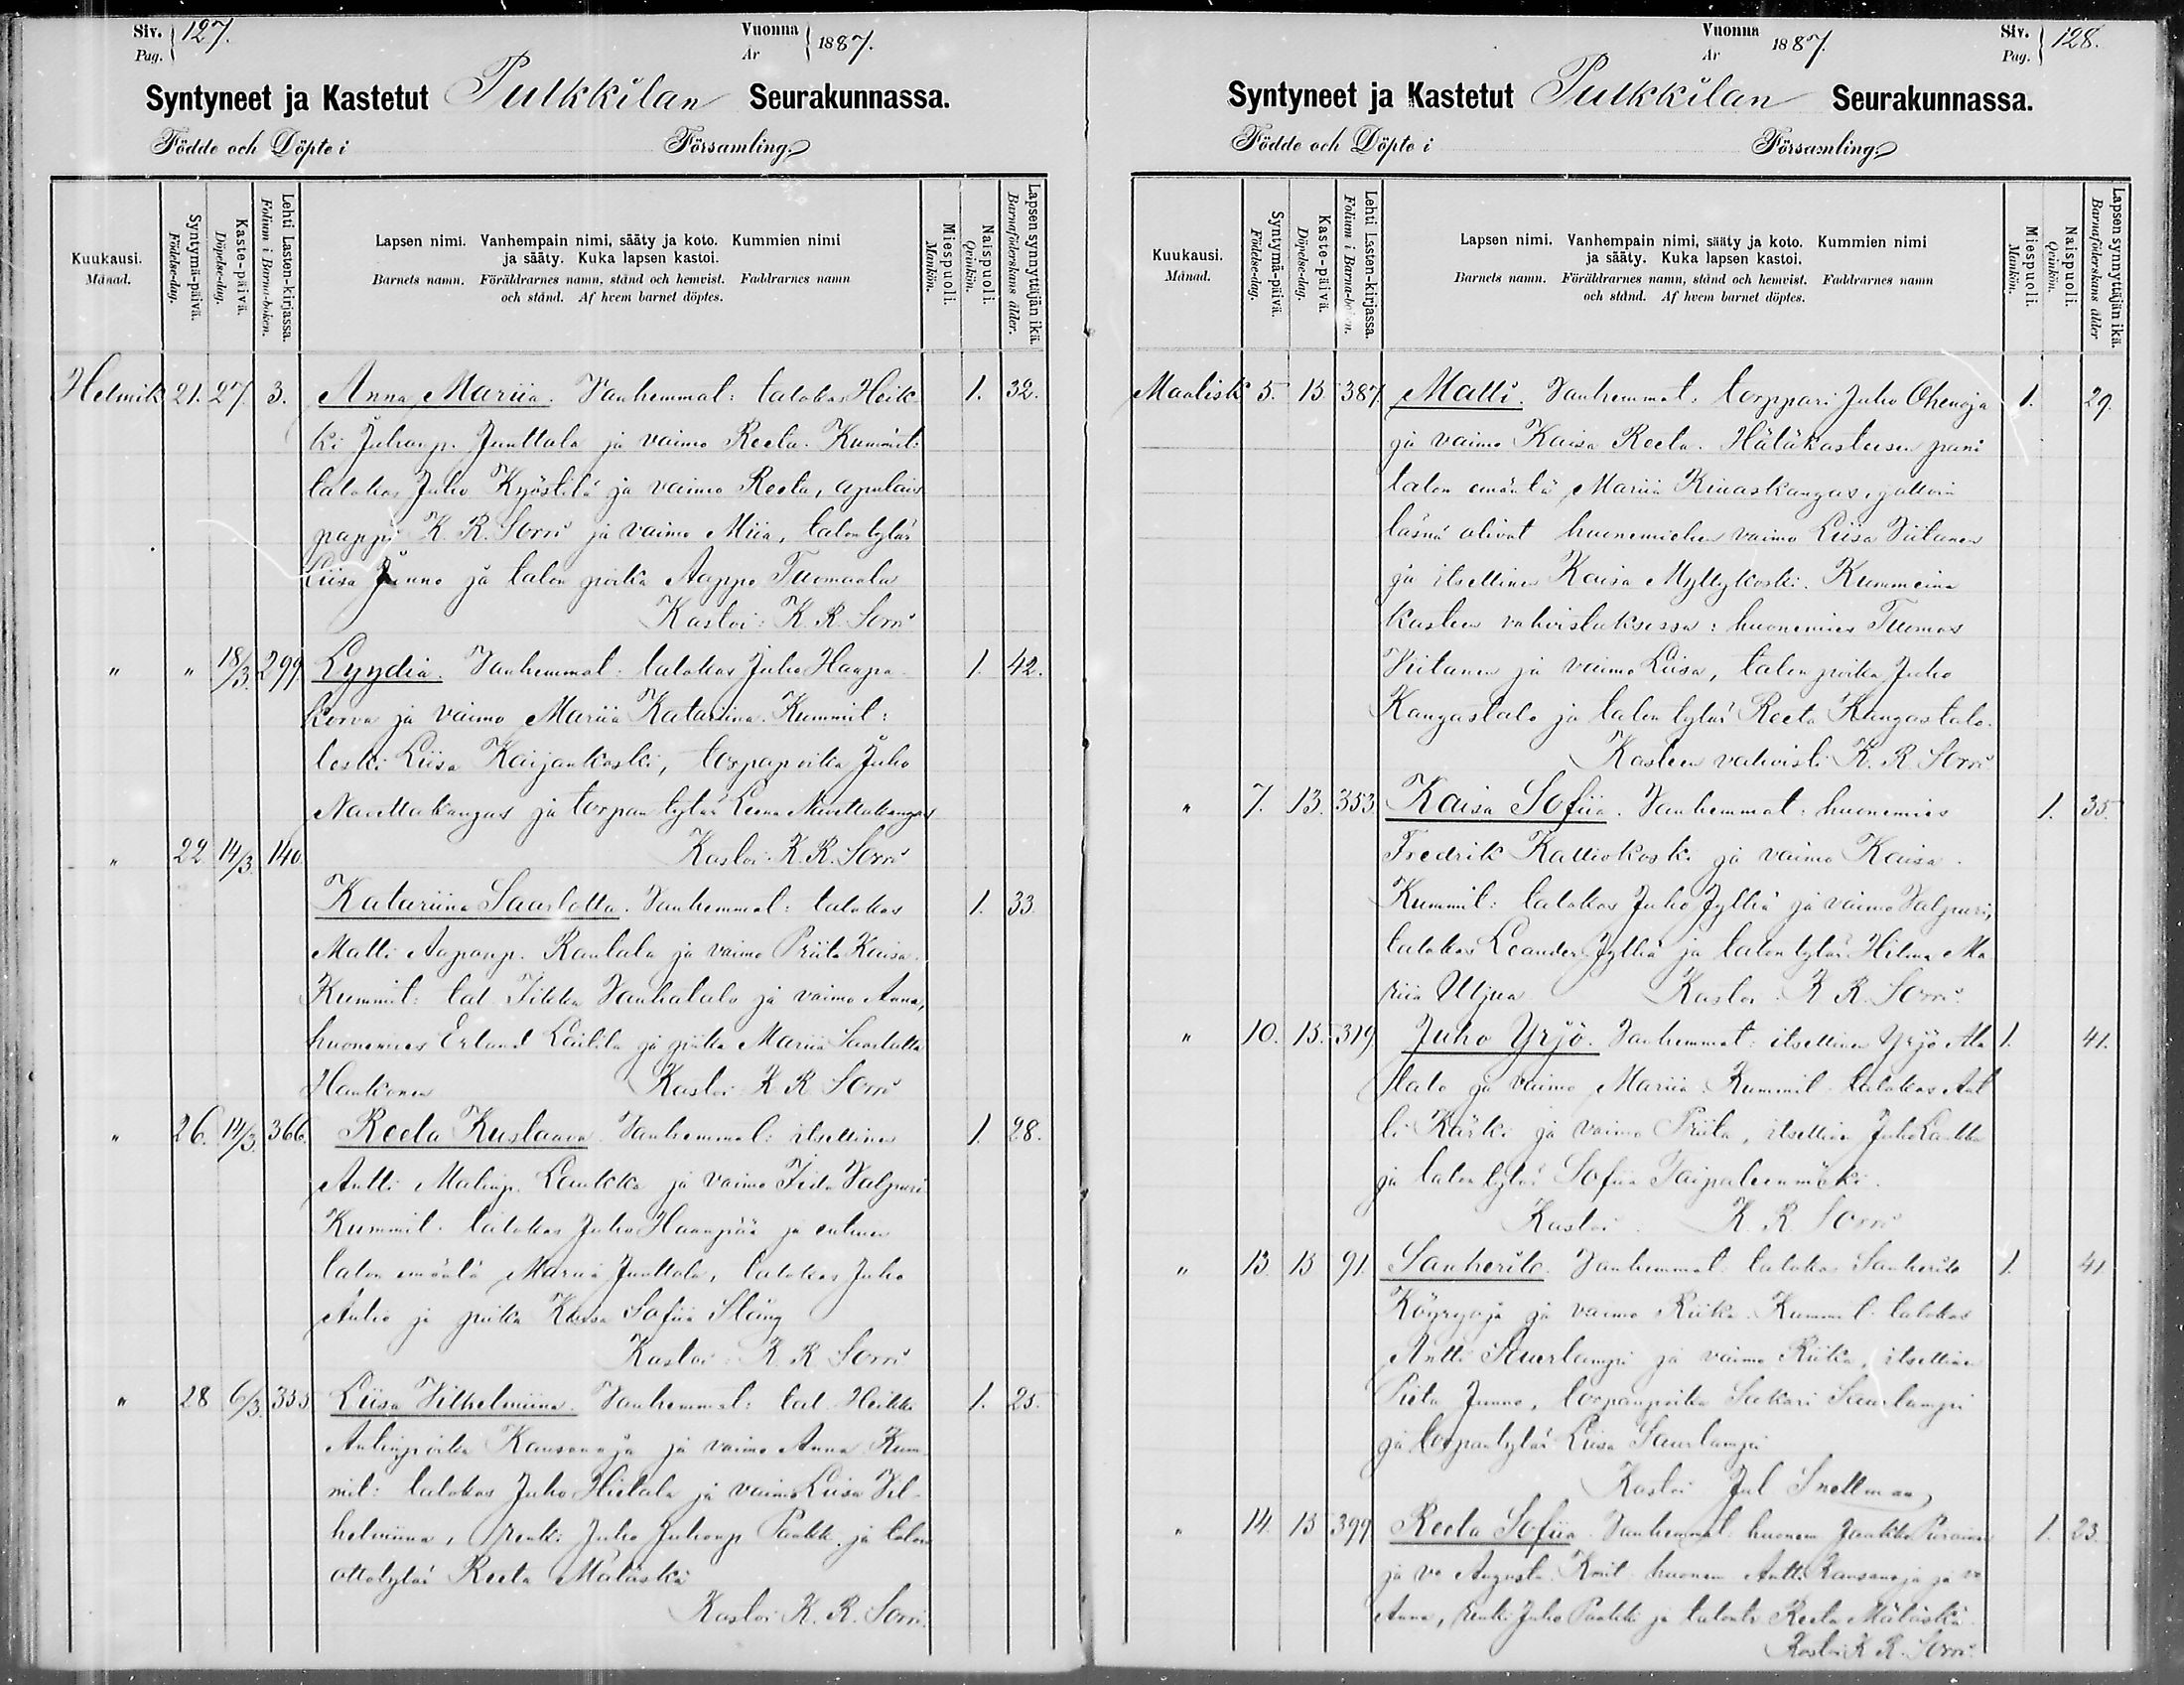 Siv. 127.
Pag.
Vuonna 1887.
År
Syntyneet ja Kastetut Pulkkilan Seurakunnassa.
Födde och Döpte i Församling.
Kuukausi.
Månad.
Syntymä-päivä.
Födelse-dag.
Kaste-päivä.
Döpelse-dag.
Lehti Lasten-kirjassa.
Folium i Barna-boken.
Lapsen nimi. Vanhempain nimi, sääty ja koto. Kummien nimi
ja sääty. Kuka lapsen kastoi.
Barnets namn. Föräldrarnes namn, stånd och hemvist. Faddrarnes namn
och stånd. Af hvem barnet döptes.
Miespuoli.
Mankön.
Naispuoli.
Qvinkön.
Lapsen synnyttäjän ikä.
Barnaföderskans ålder.
Helmik 21. 27. 3. Anna Mariia. Vanhemmat: talokas Heik- 1. 32.
ki Juhonp. Junttala ja vaimo Reeta. Kummit:
talokas Juho Kyöstilä ja vaimo Reeta, apulais
pappi K. R. Sorri ja vaimo Miia, talon tytär
Liisa Junno ja talon poika Aappo Tuomaala
Kastoi: K. R. Sorri
" " 18/3. 299. Lyydia. Vanhemmat: talokas Juho Haapa- 1. 42.
korva ja vaimo Mariia Katariina. Kummit:
leski Liisa Kaijankoski, torpapoika Juho
Navettakangas ja torpan tytär Leena Navettakangas
" 22 14/3. 140. Kastoi: K. R. Sorri
Katariina Saarlotta. Vanhemmat: talokas 1. 33.
Matti Aaponp. Rautala ja vaimo Priita Kaisa.
Kummit: tal. Vanhatalo ja vaimo Anna,
huonemies Erland Leilila ja piika Mariia Saarlotta
Hankonen Kastoi K. R. Sorri
" 26. 14/3. 366. Reeta Kustaava. Vanhemmat: itsellinen 1. 28.
Antti Matinp. Laukka ja vaimo Iida Valpuri
Kummit. talokas Juho Haanpää ja entinen
talon emäntä Mariia Junttola, talokas Juho
Anho ja piika Kaisa Sofiia Stång
Kastoi: K. R. Sorri
" 28 6/3. 355 Liisa Vilhelmiina. Vanhemmat: tal. Heikki 1. 25.
Antinpoika Kansanoja ja vaimo Anna. Kum-
mit: talokas Juho Hietala ja vaimo Liisa Vil-
helmiina, renki Juho Juhonp. Paakki ja talon
ottotytär Reeta Mätäskä
Kastoi K. R. Sorri.
Vuonna 1887.
År
Siv. 128.
Pag.
Syntyneet ja Kastetut Pulkkilan Seurakunnassa.
Födde och Döpte i Församling.
Kuukausi.
Månad.
Syntymä-päivä.
Födelse-dag.
Kaste-päivä.
Döpelse-dag.
Lehti Lasten-kirjassa.
Folium i Barna-boken.
Lapsen nimi. Vanhempain nimi, sääty ja koto. Kummien nimi
ja sääty. Kuka lapsen kastoi.
Barnets namn. Föräldrarnes namn, stånd och hemvist. Faddrarnes namn
och stånd. Af hvem barnet döptes.
Miespuoli.
Mankön.
Naispuoli.
Qvinkön.
Lapsen synnyttäjän ikä.
Barnaföderskans ålder
Maalisk 5. 13 387 Matti. Vanhemmat: torppari Juho Ohenoja 1. 29.
ja vaimo Kaisa Reeta. Hätäkasteesen pani
talon emäntä Mariia Kiuaskangas, jolloin
läsnä olivat huonemiehen vaimo Liisa Viitanen
ja itsellinen Kaisa Myllykoski. Kummeina
kasteen vahvistuksessa: huonemies Tuomas
Viitanen ja vaimo Liisa, talon poika Juho
Kangastalo ja talon tytär Reeta Kangastalo.
Kasteen vahvisti K. R. Sorri
" 7. 13. 353. Kaisa Sofiia. Vanhemmat: huonemies 1. 35.
Fredrik Kalliokoski ja vaimo Kaisa.
Kummit: talokas Juho Jylhä ja vaimo Valpuri,
talokas Leander Jylhä ja talon tytär Hilma Ma
riia Uljua Kastoi K. R. Sorri.
" 10. 13. 319 Juho Yrjö. Vanhemmat: itsellinen Yrjö Ala 1. 41.
talo ja vaimo Mariia. Kummit. talokas Ant
ti Kärki ja vaimo Priita, itsellinen Juho Laukka
ja talon tytär Sofiia Taipaleenmäki.
Kastoi K. R. Sorri
" 13. 13 91. Sanherib. Vanhemmat talokas Sanherib 1. 41
Köyryoja ja vaimo Riika. Kummit. talokas
Antti Saarlampi ja vaimo Riika, itsellinen
Junno, torpanpoika Sakari Saarlampi
ja torpantytär Liisa Saarlampi
Kastoi Jul Snellman,
" 14. 13 399 Reeta Sofiia. Vanhemmat. huonem. Jaakko 1. 23.
ja vo Augusta. Kmit: huonem Antti Kansanoja ja vo
Anna, renki Juho Paakki ja talontr Reeta Mätäskä.
Kastoi K. R. Sorri.